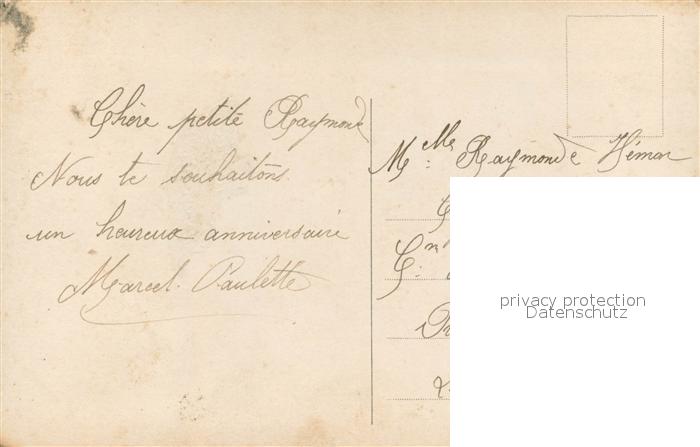 Chère petite Raymonde
Nous te souhaitons
un heureux anniversaire
Marcel. Paulette
M.elle Raymonde Hémar
privacy protection
Datenschutz